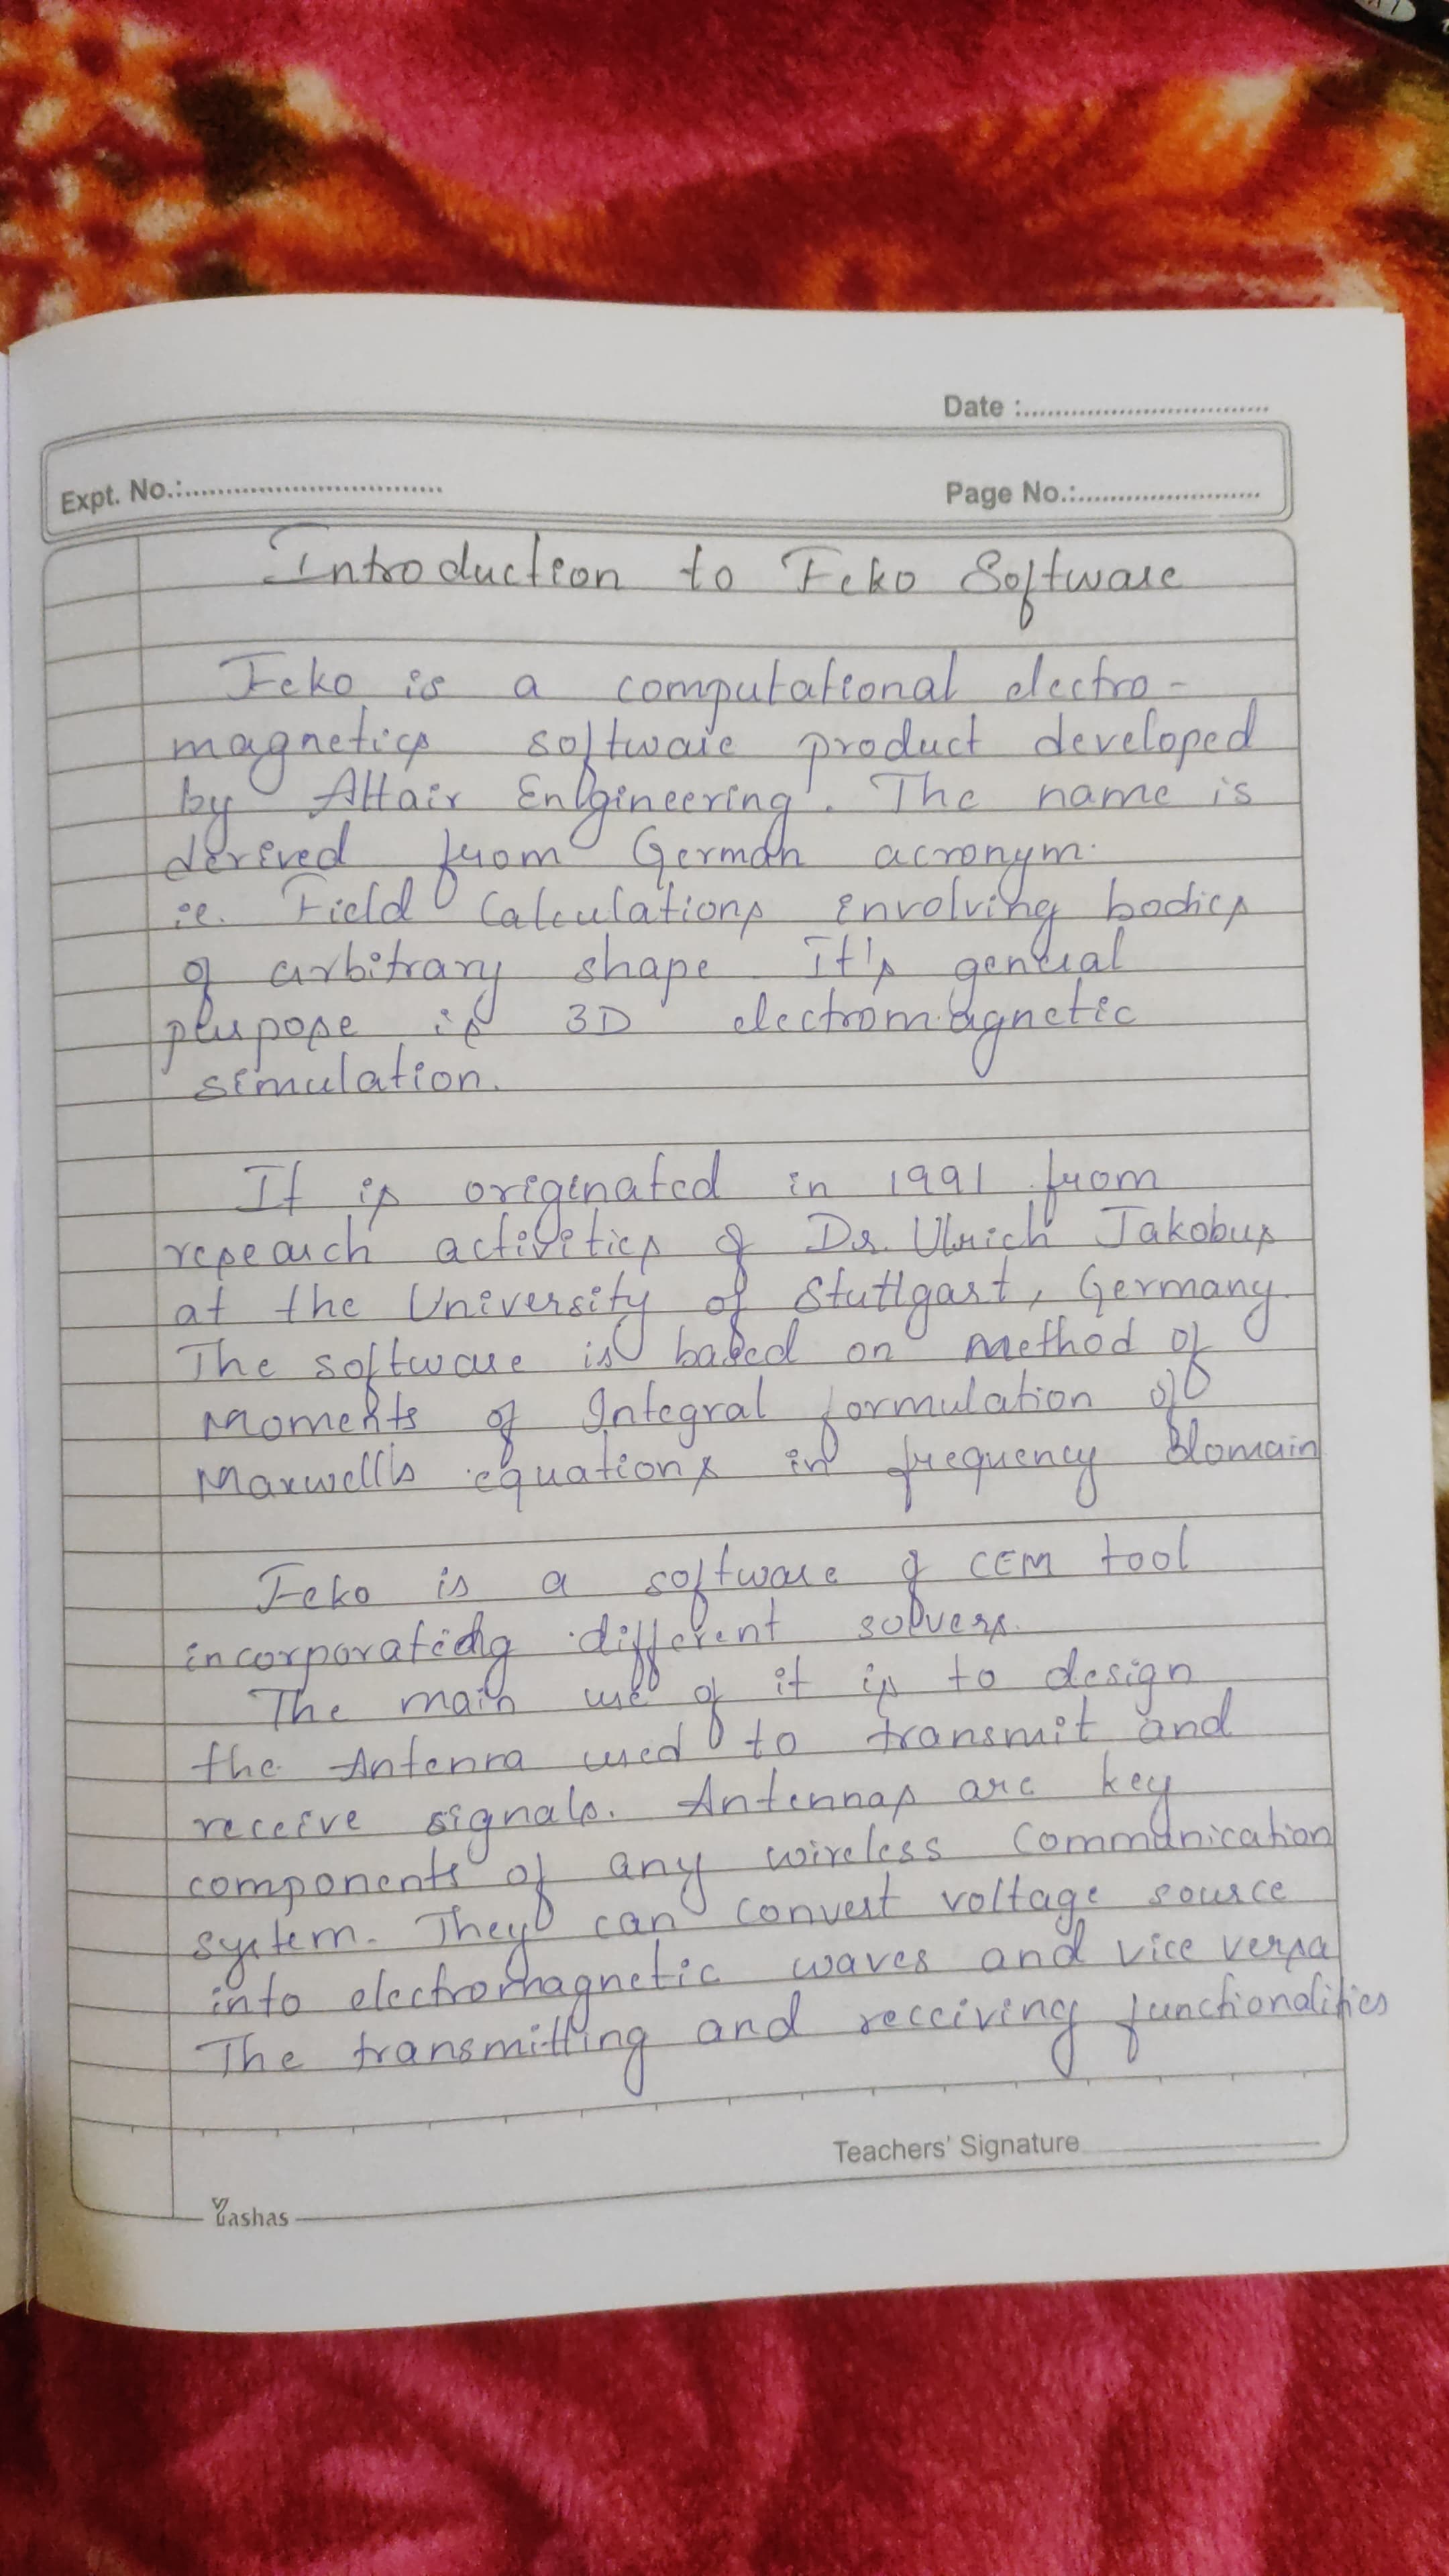 Date :
Expt. No.:
Page No.:
Introduction to Feko Software
Feko is a computational electro-
magnetics software product developed
by Altair Engineering. The name is
derived from German acronym.
ie. Field Calculations involving bodies
of arbitrary shape. It's general
purpose is 3D electromagnetic
simulation.
It is originated in 1991 from
research activities of Dr. Ulrich Jakobus
at the University of Stuttgart, Germany.
The software is based on Method of
Moments of Integral formulation of
Maxwell's equations in frequency domain
Feko is a software of CEM tool
incorporating different solvers.
The main use of it is to design
the Antenna used to transmit and
receive signals. Antennas are key
components of any wireless Communication
system. They can convert voltage source
into electromagnetic waves and vice versa
The transmitting and receiving functionalities
Teachers' Signature
Yashas